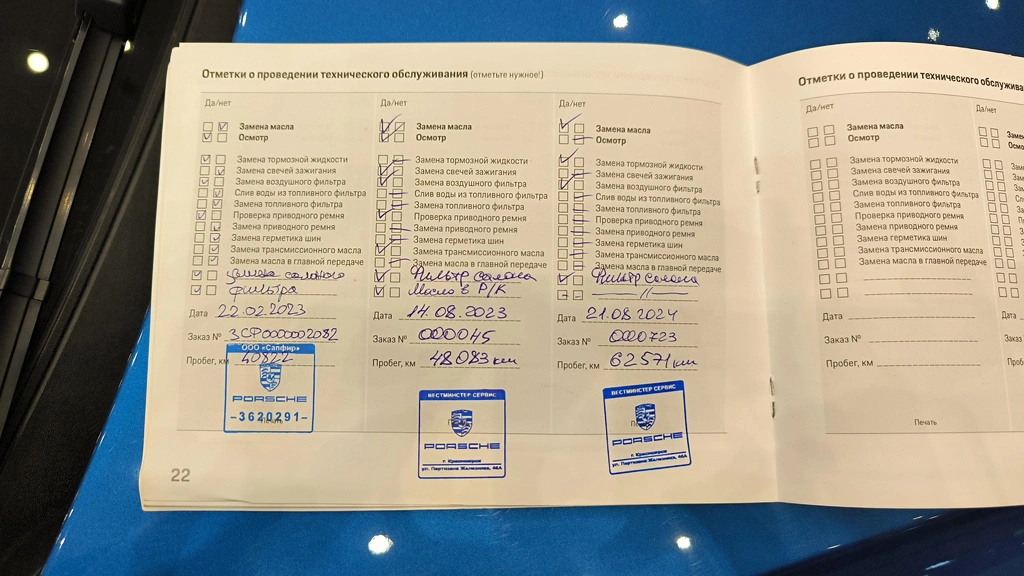 Отметки о проведении технического обслуживания (отметьте нужное!)
Да/нет
Замена масла
Осмотр
Замена тормозной жидкости
Замена свечей зажигания
Замена воздушного фильтра
Слив воды из топливного фильтра
Замена топливного фильтра
Проверка приводного ремня
Замена приводного ремня
Замена герметика шин
Замена трансмиссионного масла
Замена масла в главной передаче
замена салонного
фильтра
Дата 22.02.2023
Заказ № ЗСФ0000002082
Пробег, км 40822
ООО «Сапфир»
PORSCHE
–3620291–
Печать
Да/нет
Замена масла
Осмотр
Замена тормозной жидкости
Замена свечей зажигания
Замена воздушного фильтра
Слив воды из топливного фильтра
Замена топливного фильтра
Проверка приводного ремня
Замена приводного ремня
Замена герметика шин
Замена трансмиссионного масла
Замена масла в главной передаче
Фильтр салона
Масло в Р/К
Дата 14.08.2023
Заказ № 000045
Пробег, км 48083 км
ВЕСТМИНСТЕР СЕРВИС
PORSCHE
г. Красноярск
ул. Партизана Железняка, 46А
Да/нет
Замена масла
Осмотр
Замена тормозной жидкости
Замена свечей зажигания
Замена воздушного фильтра
Слив воды из топливного фильтра
Замена топливного фильтра
Проверка приводного ремня
Замена приводного ремня
Замена герметика шин
Замена трансмиссионного масла
Замена масла в главной передаче
Фильтр салона
Дата 21.08.2024
Заказ № 000723
Пробег, км 62571 км
ВЕСТМИНСТЕР СЕРВИС
PORSCHE
г. Красноярск
ул. Партизана Железняка, 46А
22
Отметки о проведении технического обслужива
Да/нет
Замена масла
Осмотр
Замена тормозной жидкости
Замена свечей зажигания
Замена воздушного фильтра
Слив воды из топливного фильтра
Замена топливного фильтра
Проверка приводного ремня
Замена приводного ремня
Замена герметика шин
Замена трансмиссионного масла
Замена масла в главной передаче
Дата
Заказ №
Пробег, км
Печать
Да/нет
Замен
Осмо
Дата
Заказ
Пробег